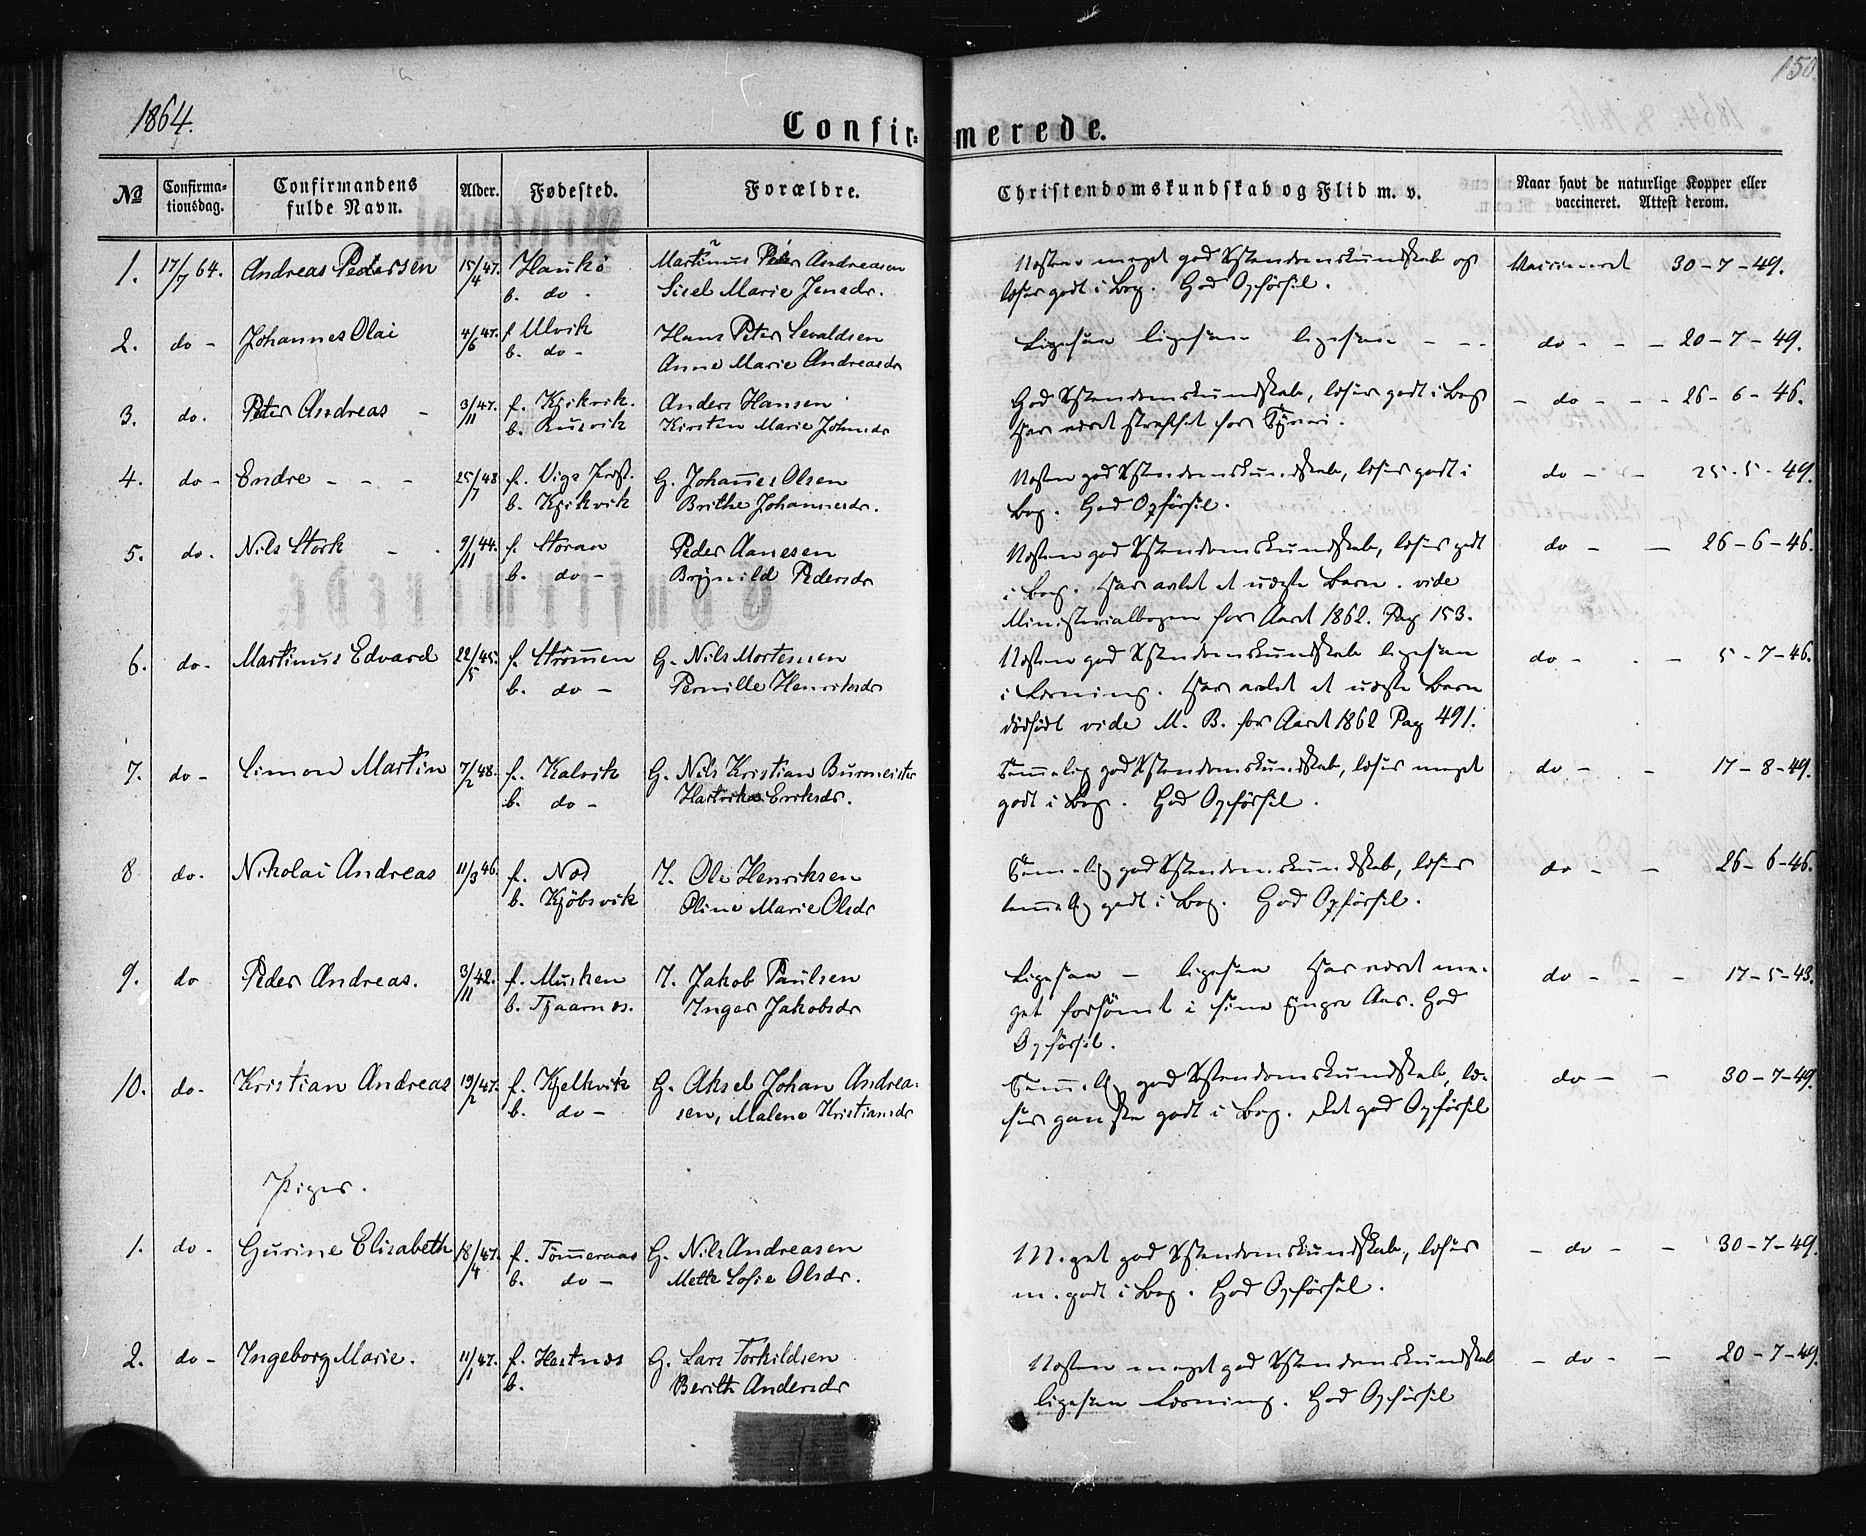 1864.
150.
Confir=merede.
No Confirma-tionsdag. Confirmandens fulde Navn. Alder. Fødested. Forældre. Christendomskundskab og Flid m. v. Naar havt de naturlige Kopper eller vaccineret. Attest derom.
1. 17/7 64. Andreas Pedersen 15/4 47. Haukö Martinus Peder Andreasen Næsten meget god Xstendomskundskab og Vaccineret 30-7-49.
b. do. Sicel Marie Jensdr. læser godt i Bog. God Opförsel.
2. do - Johannes Olai 4/6 47. f. Ulvik Hans Peter Sevaldsen Ligesaa ligesaa ligesaa - - - do - - - 20-7-49.
b. do - Anne Marie Andreasdr
3. do. Peter Andreas - 3/11 47. f. Kjikvik. Anders Hansen God Xstendomskundskab, læser godt i Bog - do - - - 26-6-46.
b. Kirsten Marie Johnsdr Har været straffet for Tyveri.
4. do - Endre - - - 25/7 48 f. Vigs Præst. G. Johannes Olsen Næsten god Xstendomskundskab, læser godt i do - - - 25-5-49.
b. Kjikvik Brithe Johannesdr. Bog. God Opförsel.
5. do. Nils Stork - . 9/11 44. f. Storaa Peder Aanesen Næsten god Xstendomskundskab, læser godt do - - 26-6-46.
b. do - Brynild Pedersdr i Bog. Har avlet et uægte Barn. vide
Ministerialbogen for Aaret 1862. Pag 153.
6. do - Martinus Edvard 22/5 45. f. Strömmen G. Nils Mortensen Næsten god Xstendomskundskab ligesaa do - . - 5-7-46.
b. do - Pernille Henriksdr i Læsning. Har avlet et uægte Barn
dödfödt vide M. B. for Aaret 1862 Pag 491.
7. do - Simon Martin 7/2 48. f. Kalvik G. Nils Kristian Burmeister Temmelig god Xstendomskundskab, læser meget do - . - 17-8-49.
b. do - Erriksdr. godt i Bog. God Opförsel.
8 do. Nikolai Andreas 11/3 46. f. Næs I. Ole Henriksen Temmelig god Xstendomskundskab, læser do - - 26-6-46.
b. Kjöbsvik Oline Marie Olsdr temmelig godt i Bog. God Opförsel.
9. do Peder Andreas. 3/11 42. f. Musken I. Jakob Paulsen Ligesaa - ligesaa Har været me- do - - - 17-5-43.
b. Tjaarnes. Inger Jakobsdr get forsömt i sine yngre Aar. God
Opförsel.
10. do - Kristian Andreas 19/2 47. f. Kjelkvik G. Aksel Johan Andrea- Temmelig god Xstendomskundskab, læ- do - - 30-7-49.
b. do - sen, Malene Kristiansdr ser ganske godt i Bog. god Opförsel
Piger.
1. do - Gurine Elisabeth 18/4 47. f. Tömmeraas G. Nils Andreasen Meget god Xstendomskundskab, læser - do - - 30-7-49.
b. do - Mette Sofie Olsdr. m. godt i Bog. God Opförsel.
2. do - Ingeborg Marie. 11/1 47. f. Hestnæs G. Lars Torkildsen Næsten meget god Xstendomskundskab - do - - 20-7-49.
b. Berith Andersdr ligesaa Læsning. God Opförsel